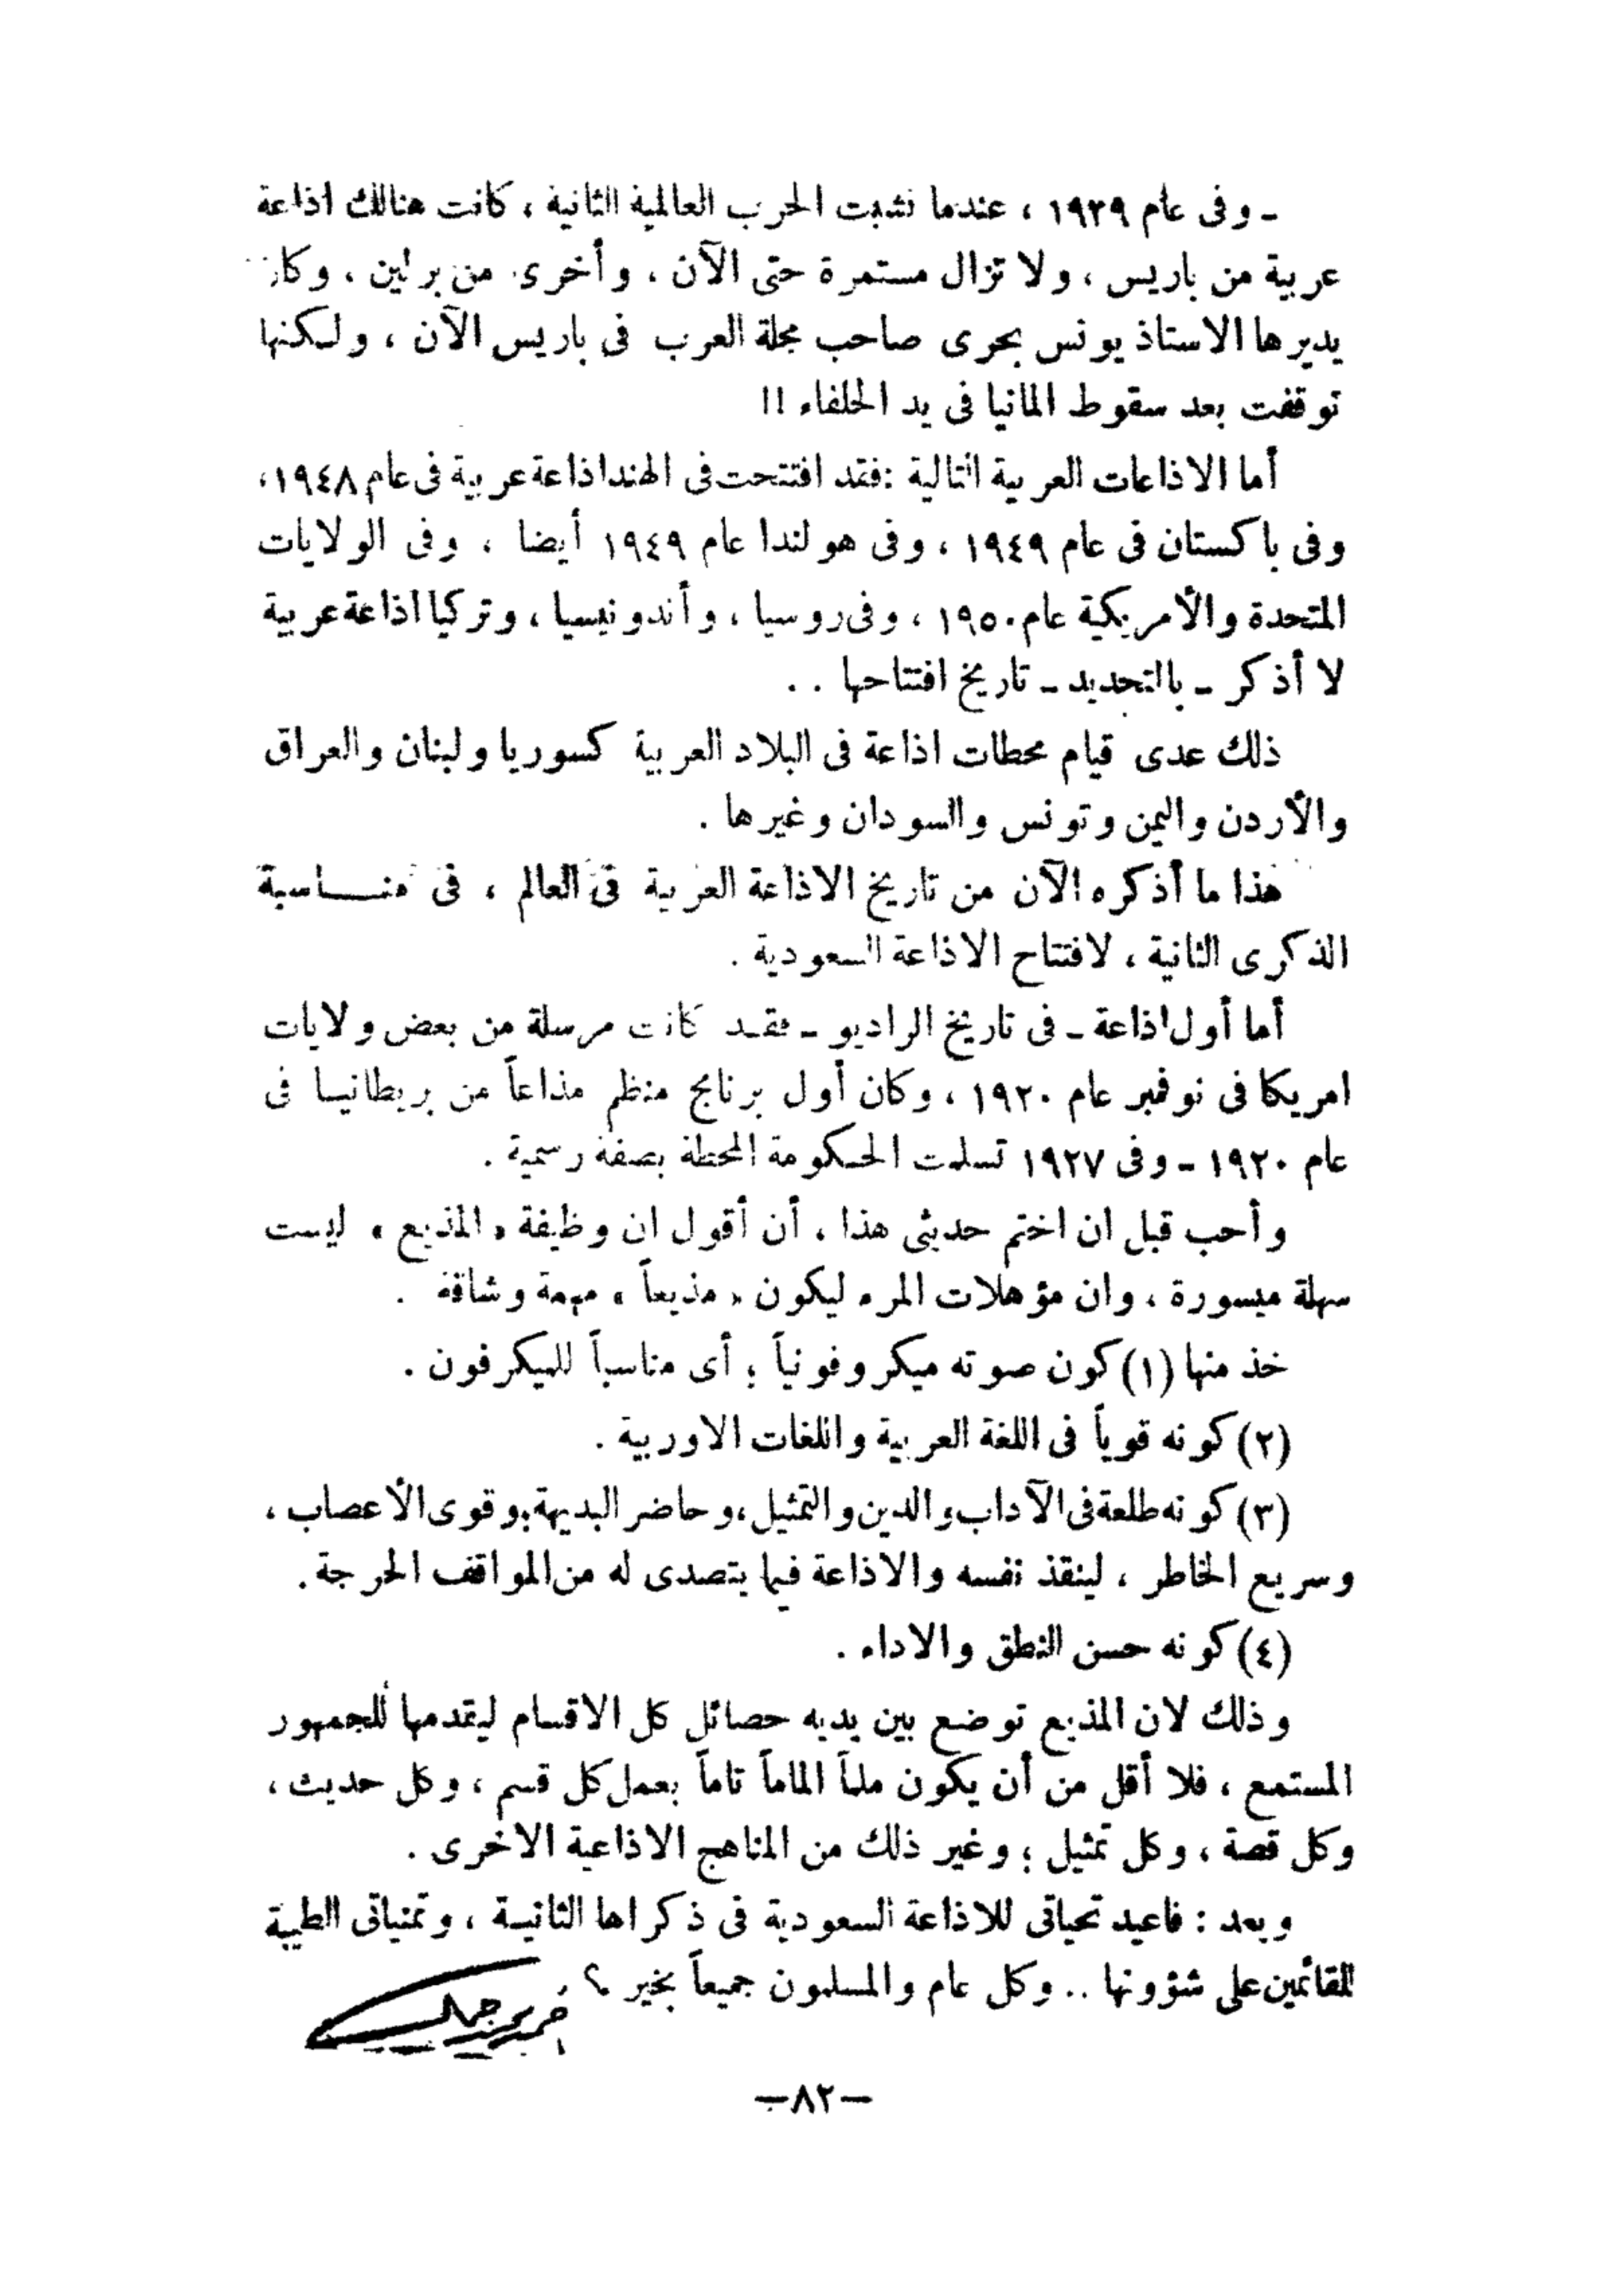 ـ وفى عام ١٩٣٩ ، عندما نشبت الحرب العالمية الثانية ، كانت هنالك اذاعة
عربية من باريس ، ولا تزال مستمرة حتى الآن ، وأخرى من برلين ، وكان
يديرها الاستاذ يونس بحرى صاحب مجلة العرب فى باريس الآن ، ولكنها
توقفت بعد سقوط المانيا فى يد الحلفاء !!
أما الاذاعات العربية التالية : فقد افتتحت فى الهند اذاعة عربية فى عام ١٩٤٨ ،
وفى باكستان فى عام ١٩٤٩ ، وفى هولندا عام ١٩٤٩ أيضا ، وفى الولايات
المتحدة والأمريكية عام ١٩٥٠ ، وفى روسيا ، وأندونيسيا ، وتركيا اذاعة عربية
لا أذكر ـ بالتحديد ـ تاريخ افتتاحها . .
ذلك عدى قيام محطات اذاعة فى البلاد العربية كسوريا ولبنان والعراق
والأردن واليمن وتونس والسودان وغيرها .
هذا ما أذكره الآن من تاريخ الاذاعة العربية فى العالم ، فى منـاسبة
الذكرى الثانية ، لافتتاح الاذاعة السعودية .
أما أول اذاعة ـ فى تاريخ الراديو ـ فقد كانت مرسلة من بعض ولايات
امريكا فى نوفمبر عام ١٩٢٠ ، وكان أول برنامج منظم مذاعاً من بريطانيا فى
عام ١٩٢٠ ـ وفى ١٩٢٧ تسلمت الحكومة المحطة بصفة رسمية .
وأحب قبل ان اختم حديثى هذا ، أن أقول ان وظيفة « المذيع » ليست
سهلة ميسورة ، وان مؤهلات المرء ليكون « مذيعاً » مهمة وشاقة .
خذ منها (١) كون صوته ميكروفونياً ؛ أى مناسباً للميكرفون .
(٢) كونه قوياً فى اللغة العربية واللغات الاوربية .
(٣) كونه طلعة فى الآداب والدين والتمثيل ، وحاضر البديهة ؛ وقوى الأعصاب ،
وسريع الخاطر ، لينقذ نفسه والاذاعة فيما يتصدى له من المواقف الحرجة .
(٤) كونه حسن النطق والاداء .
وذلك لان المذيع توضع بين يديه حصائل كل الاقسام ليقدمها للجمهور
المستمع ، فلا أقل من أن يكون ملماً الماماً تاماً بعمل كل قسم ، وكل حديث ،
وكل قصة ، وكل تمثيل ؛ وغير ذلك من المناهج الاذاعية الاخرى .
وبعد : فاعيد تحياتى للاذاعة السعودية فى ذكراها الثانية ، وتمنياتى الطيبة
للقائمين على شؤونها .. وكل عام والمسلمون جميعاً بخير ؟
—٨٢—